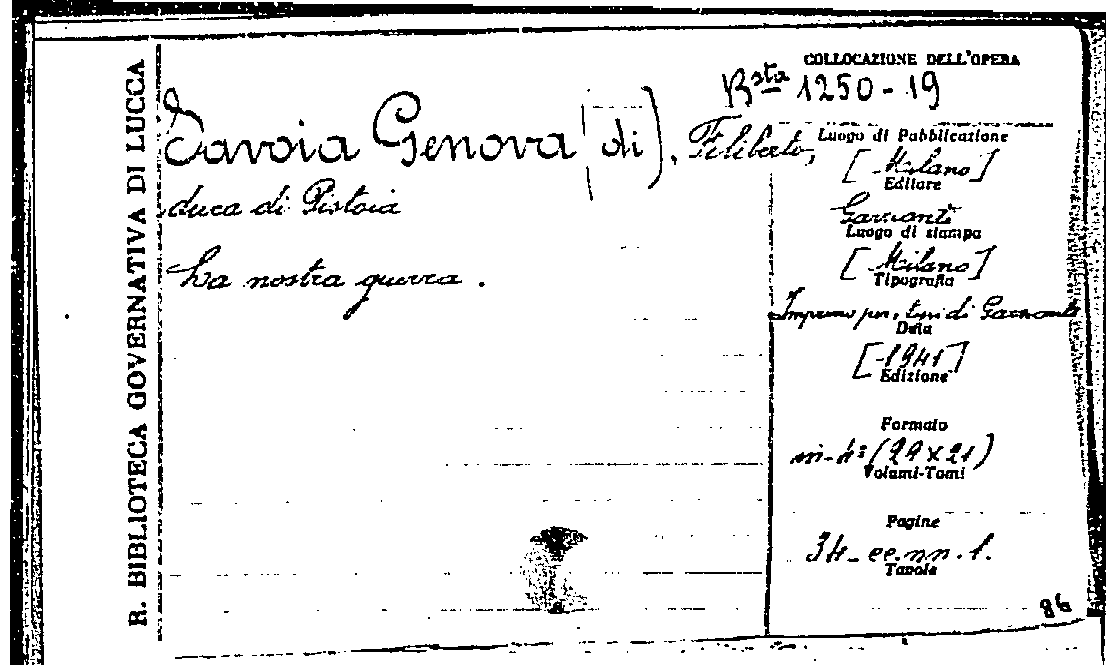 R. BIBLIOTECA GOVERNATIVA DI LUCCA
COLLOCAZIONE DELL'OPERA
Bsta 1250-19
Savoia Genova (di), Filiberto,
duca di Pistoia
La nostra guerra.
Luogo di Pubblicazione
[Milano]
Editore
Garzanti
Luogo di stampa
[Milano]
Tipografia
Impresso per. tipi di Garzanti
Data
[1941]
Edizione
Formato
in-4° (29x21)
Volumi-Tomi
Pagine
34-cc.nn.f.
Tavole
86